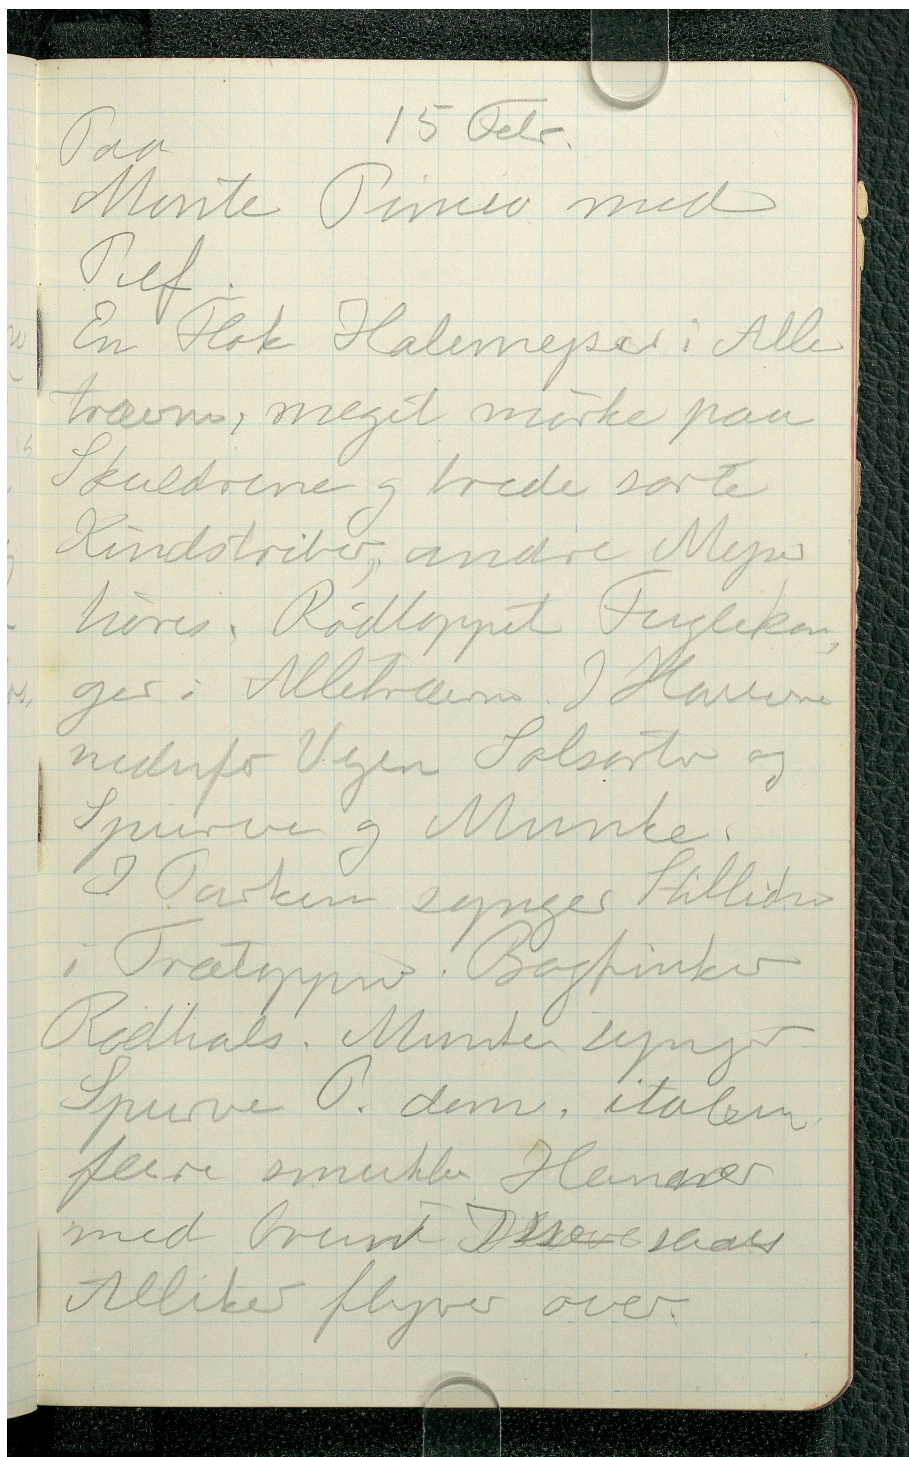 15 Febr.
Paa
Monte Pincio med
Pief.
En Flok Halemejser i Alle
træerne, meget mørke paa
Skuldrene og brede sorte
Kindstriber, andre Mejser
høres. Rødtoppet Fuglekon,
ger i Alletræerne. I Haverne
nedenfor Vejen Solsorter og
Spurve og Munke.
I Parken synger Stillidser
i Trætoppene. Bogfinker
Rødhals. Munken synger
Spurve P. dom. italien.
flere smukke Hanner
med brunt saaes
Alliker flyver over.